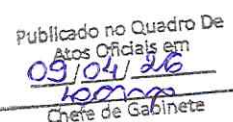 Publicado no Quadro De
Atos Oficiais em
09/04/26
Chefe de Gabinete